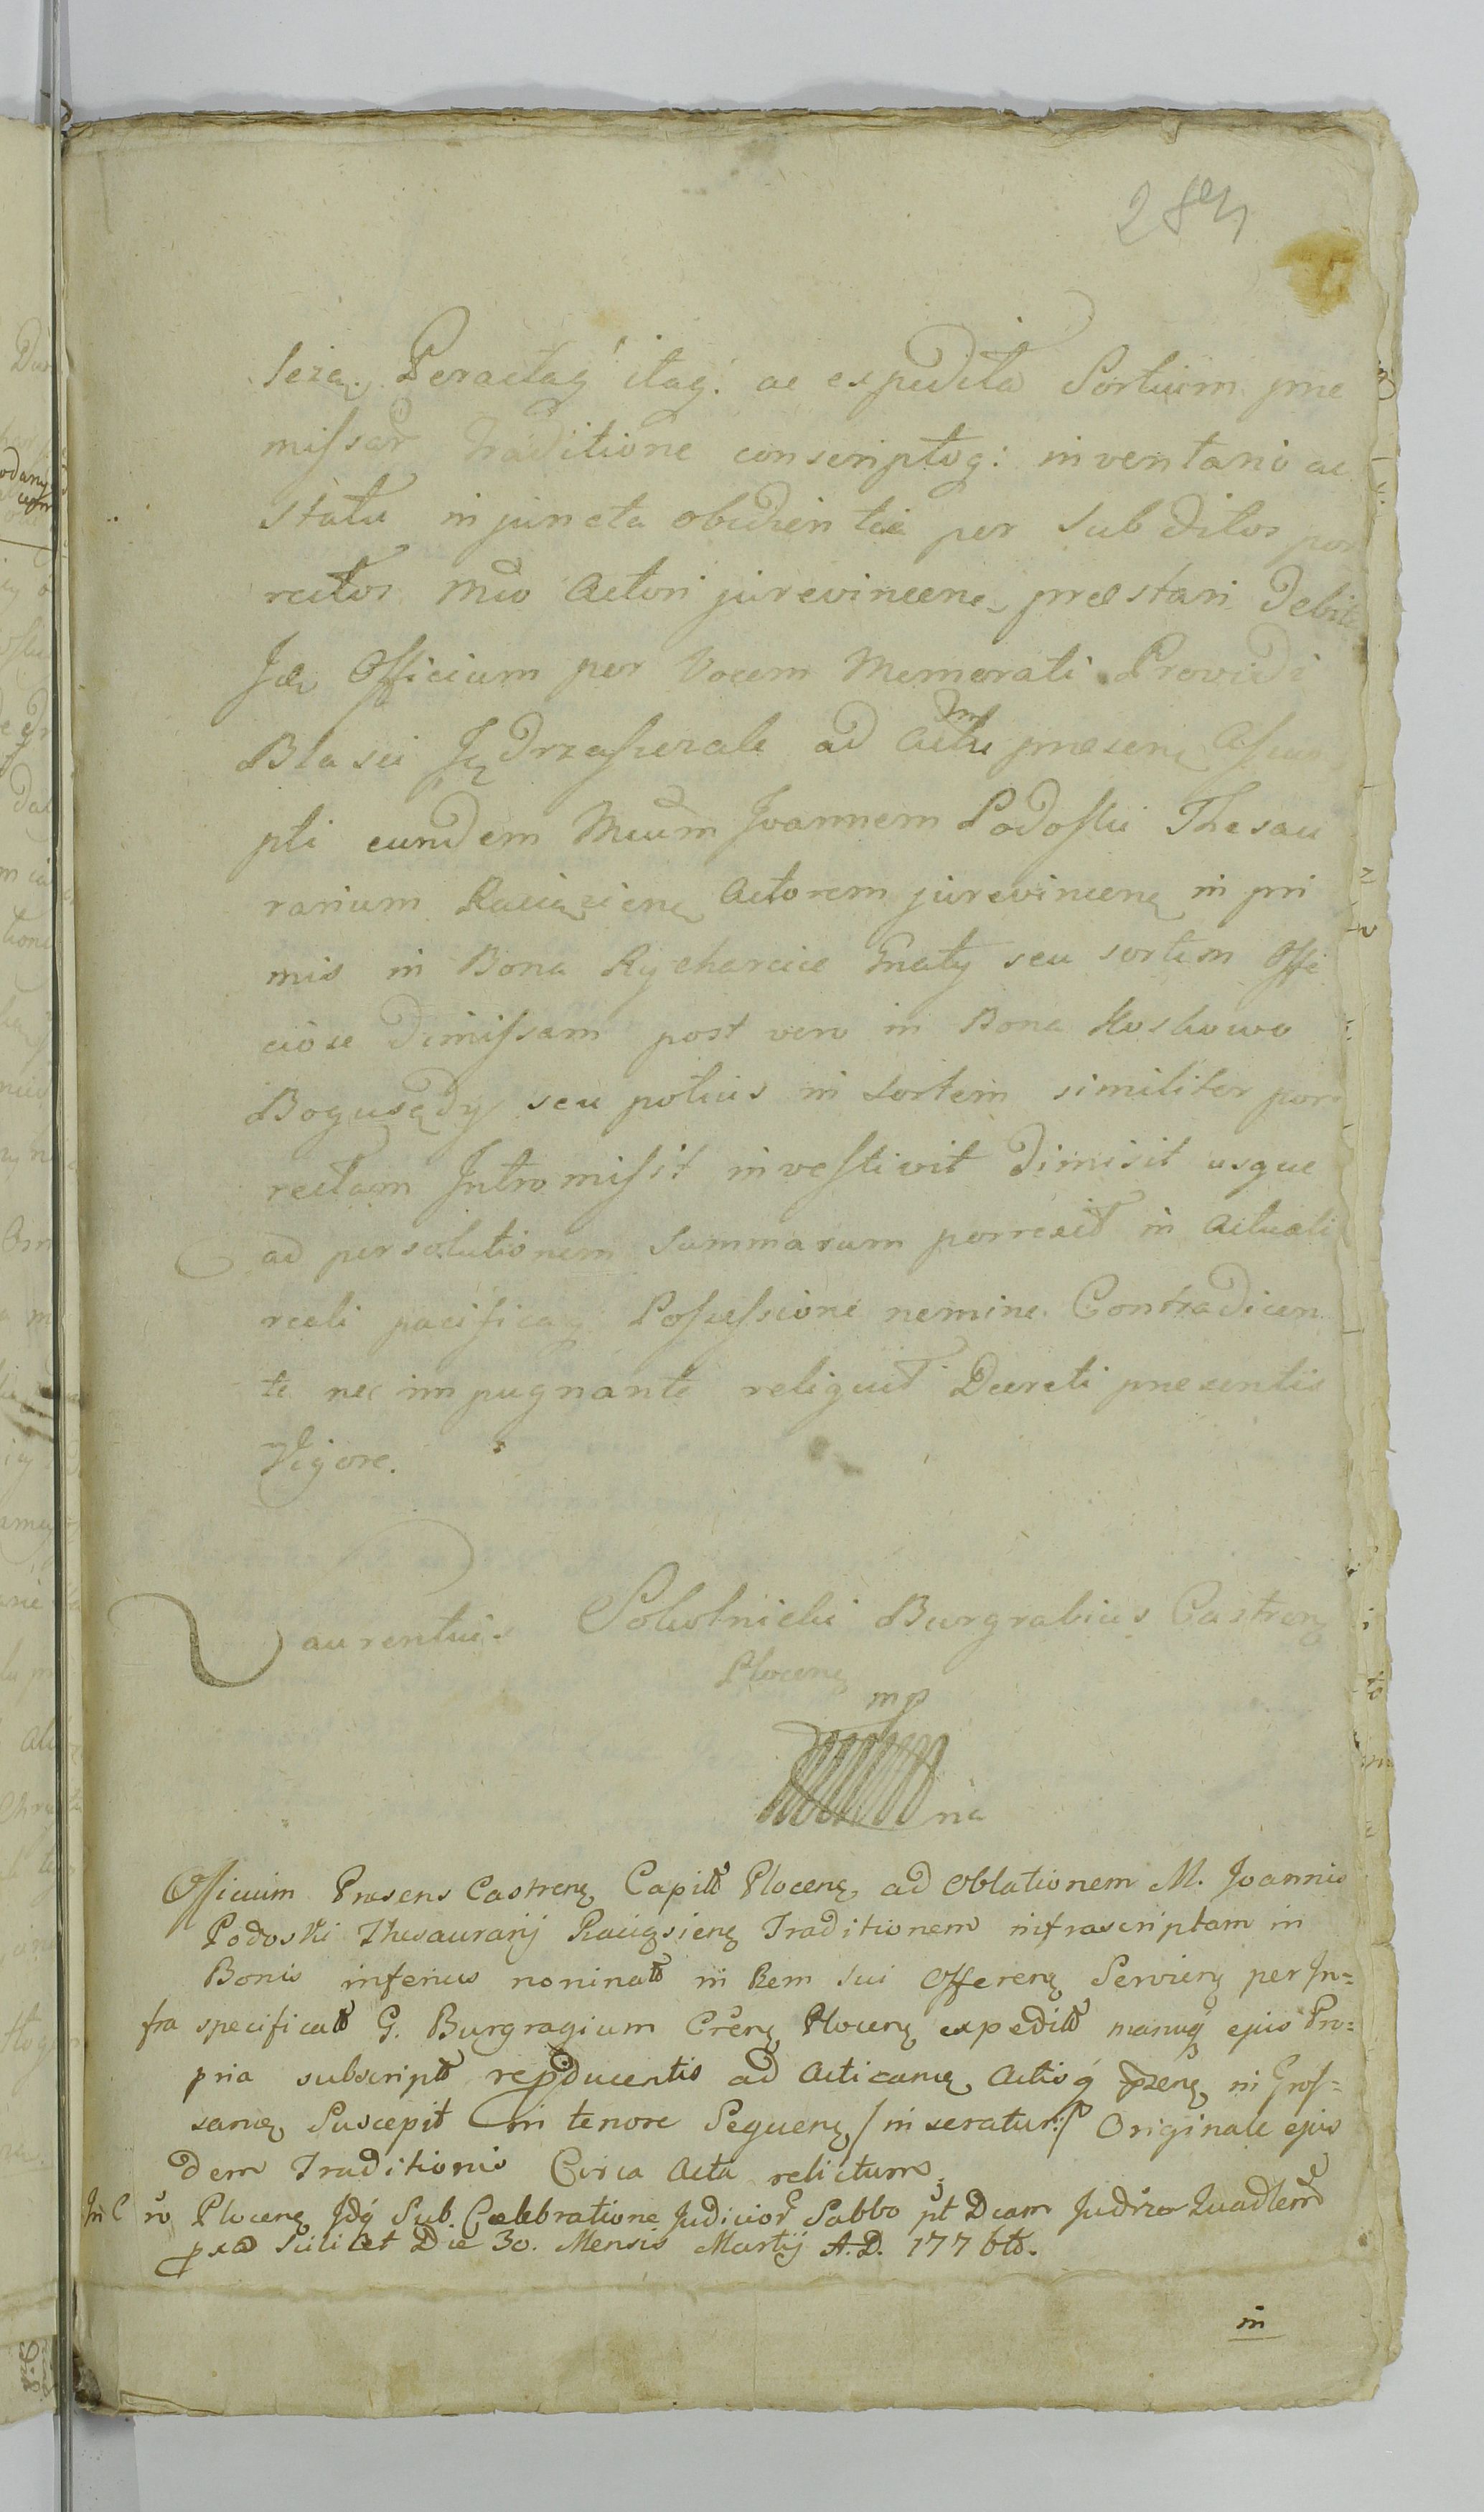 284
seza. Peractaq́ itaq. ac expedita Sortium prae
missar Traditione conscriptoq: inventario ac
statu injuncta obedientia per subditos por
rectos Mco Actori jurevincenę praestari debita
Idę Officium per Vocem Memorati Providi
Blasei Jędrzaszczak ad Actu praesenę Assum
pti eundem Mcum Joannem Podoski Thesau
rarium Raciązienę Actorem jurevincenę in pri
mis in Bona Rycharcice Gnaty seu sortem Offi
ciose dimissam post vero in Bona Koskowo
Bogusędy seu potius in sortem similiter por
rectam Intromisit investivit dimisit usque
ad persolutionem summarum porrexit in actuali
reali pacificaq Possessione nemine Contradicen
te nec impugnante reliquit Decreti praesentis
Vigore.
Laurentius Sokolnicki Burgrabius Castrenę
Plocenę
mp
Officium Praesens Castrenę Capitt Plocenę ad Oblationem M. Joannis
Podoski Thesaurarij Raciązienę Traditionem infrascriptam in
Bonis inferius nominatt in Rem sui Offerenę Servienę per In=
fra specificatt G. Burgragium Crenę Plocenę expeditt manuq ejus Pro=
pria subscriptt repducentis ad Acticanę Actisq́ przenę in Gros=
sanę Suscepit in tenore Sequenę /:inseratur:/ Originale ejus
dem Traditionis Circa Acta relictum.
In C ro Plocenę Idq́ Sub Caelebratione Judicior Sabbo pt Dcam Judica Quadlem
pxa Scilicet Die 30. Mensis Martij A.D. 1776tt.
in